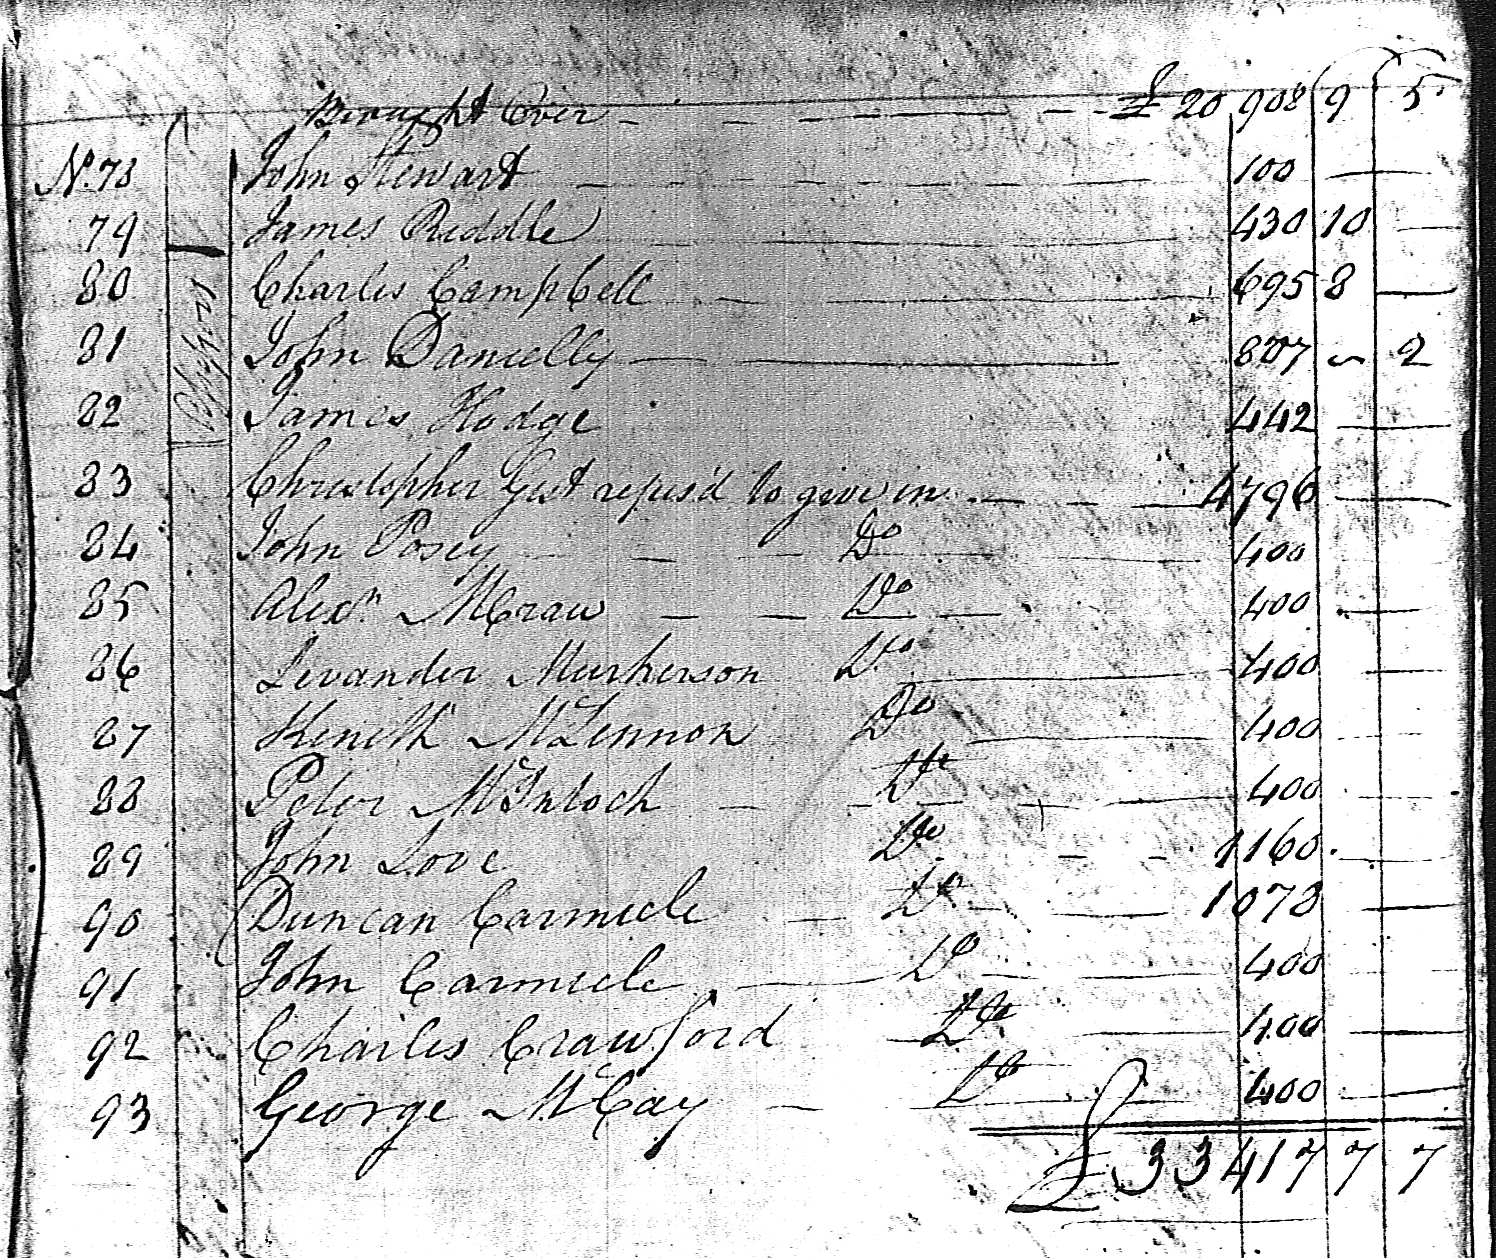 Brought Over - - - £ 20 908 9 5
No. 78 John Stewart - - - 100 —
79 James Riddle - - 430 10 —
80 Charles Campbell - - 695 8 —
81 John Danielly — — 807 ~ 2
82 James Hodge 442 — —
83 Christopher Gist refus'd to give in. - - - 4796 —
84 John Posey - - - Do — 400 —
85 Alexr. McCraw — — Do — 400 —
86 Levander Murkerson Dto — 400 —
87 Keneth McLennon Do — 400 —
88 Peter McIntoch — - Dto — 400 —
89 John Love Do - - 1160. —
90 Duncan Carmicle — Do — 1078 —
91 John Carmicle — Do — 400
92 Charles Crawford Do — 400 —
93 George McCay — Do — 400 —
£ 33417 7 7